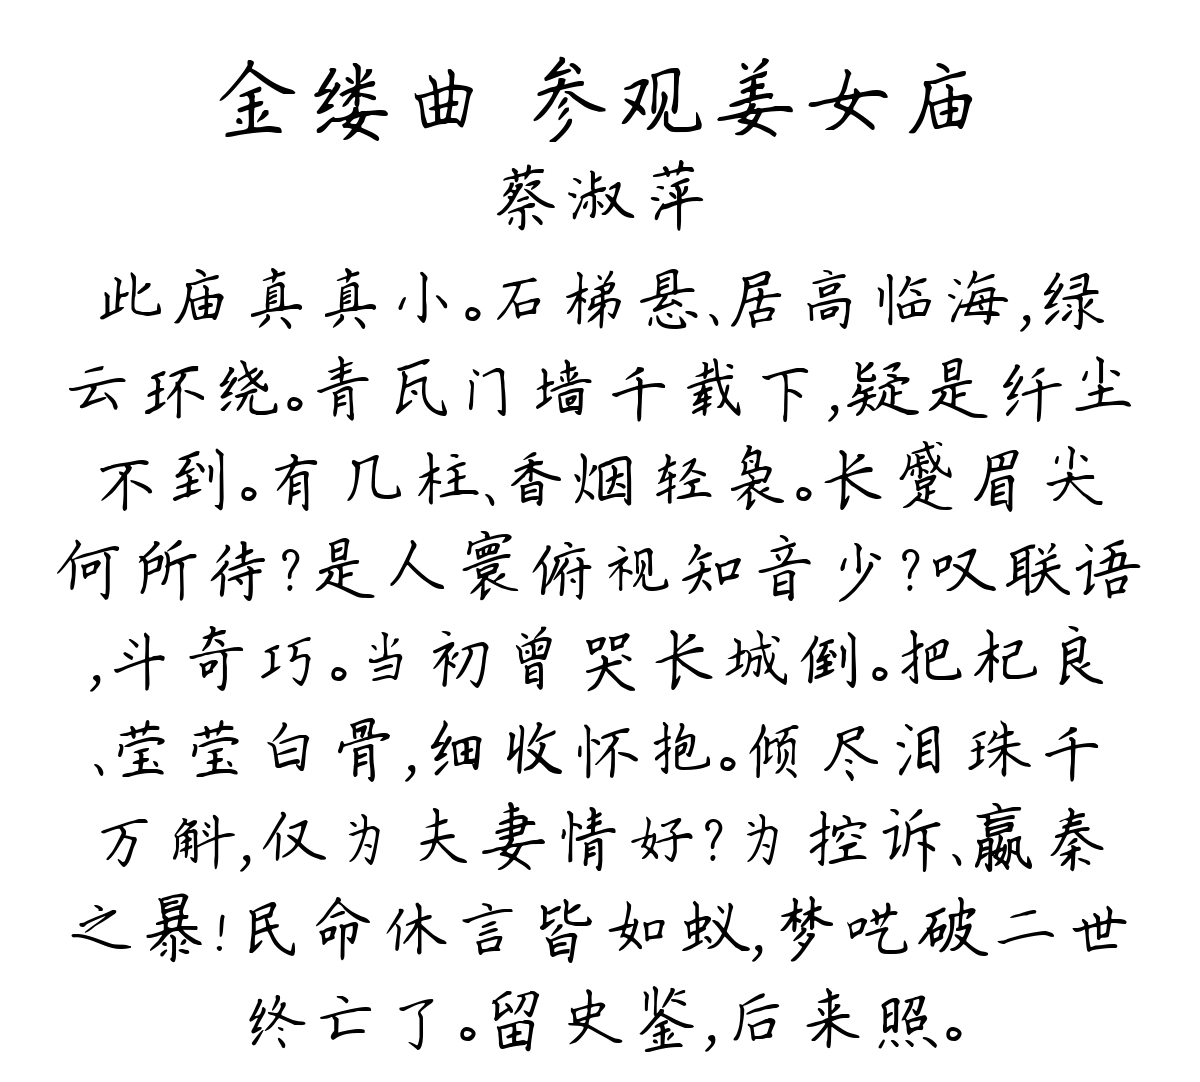 金缕曲 参观姜女庙
蔡淑萍
此庙真真小。石梯悬、居高临海,绿
云环绕。青瓦门墙千载下,疑是纤尘
不到。有几柱、香烟轻袅。长蹙眉尖
何所待?是人寰俯视知音少?叹联语
,斗奇巧。当初曾哭长城倒。把杞良
、莹莹白骨,细收怀抱。倾尽泪珠千
万斛,仅为夫妻情好?为控诉、嬴秦
之暴!民命休言皆如蚁,梦呓破二世
终亡了。留史鉴,后来照。